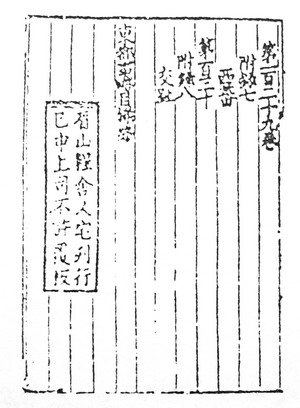 第一百二十九卷
附録七
西蕃
第一百三十
附録八
交趾
東都事略目錄終
眉山程舍人宅刊行
已申上司不許覆板